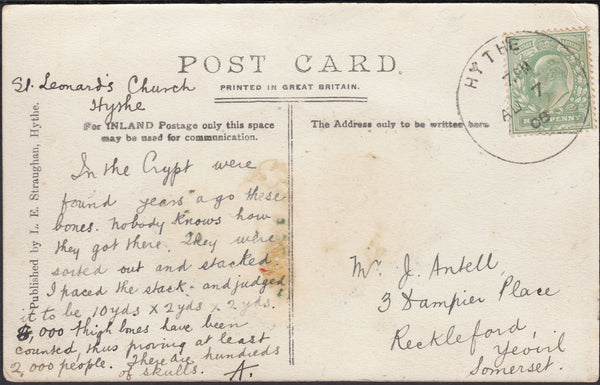 POST CARD.
PRINTED IN GREAT BRITAIN.
St. Leonard's Church
Hythe
For INLAND Postage only this space
may be used for communication.
In the Crypt were
found years ago these
bones. Nobody knows how
they got there. They were
sorted out and stacked.
I paced the stack - and judged
it to be 10yds x 2yds x 2yds.
,000 thigh bones have been
counted, thus proving at least
2,000 people. There are hundreds
of skulls. A.
Published by L. E. Straughan, Hythe.
The Address only to be written here.
HYTHE
7
05
HALFPENNY
Mr. J. Antell,
3 Dampier Place
Reckleford,
Yeovil
Somerset.